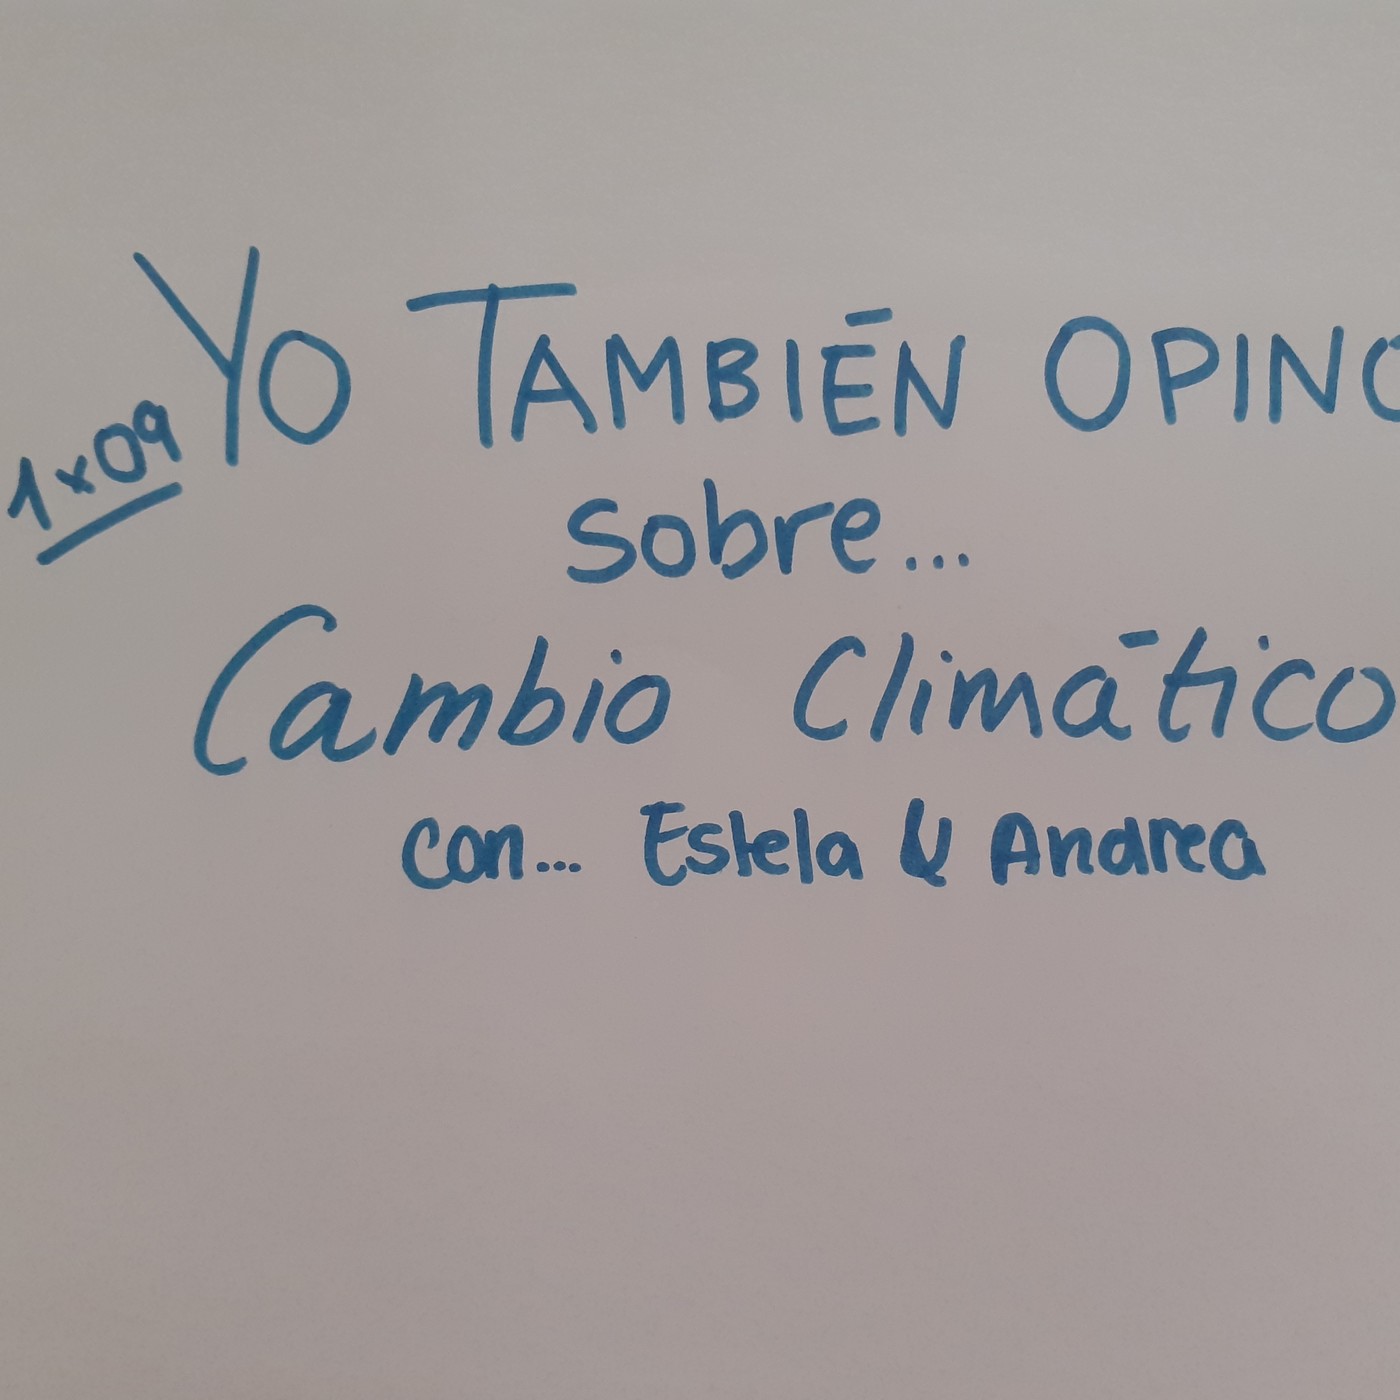 1x09
YO TAMBIÉN OPINO
sobre...
Cambio Climático
con... Estela & Andrea